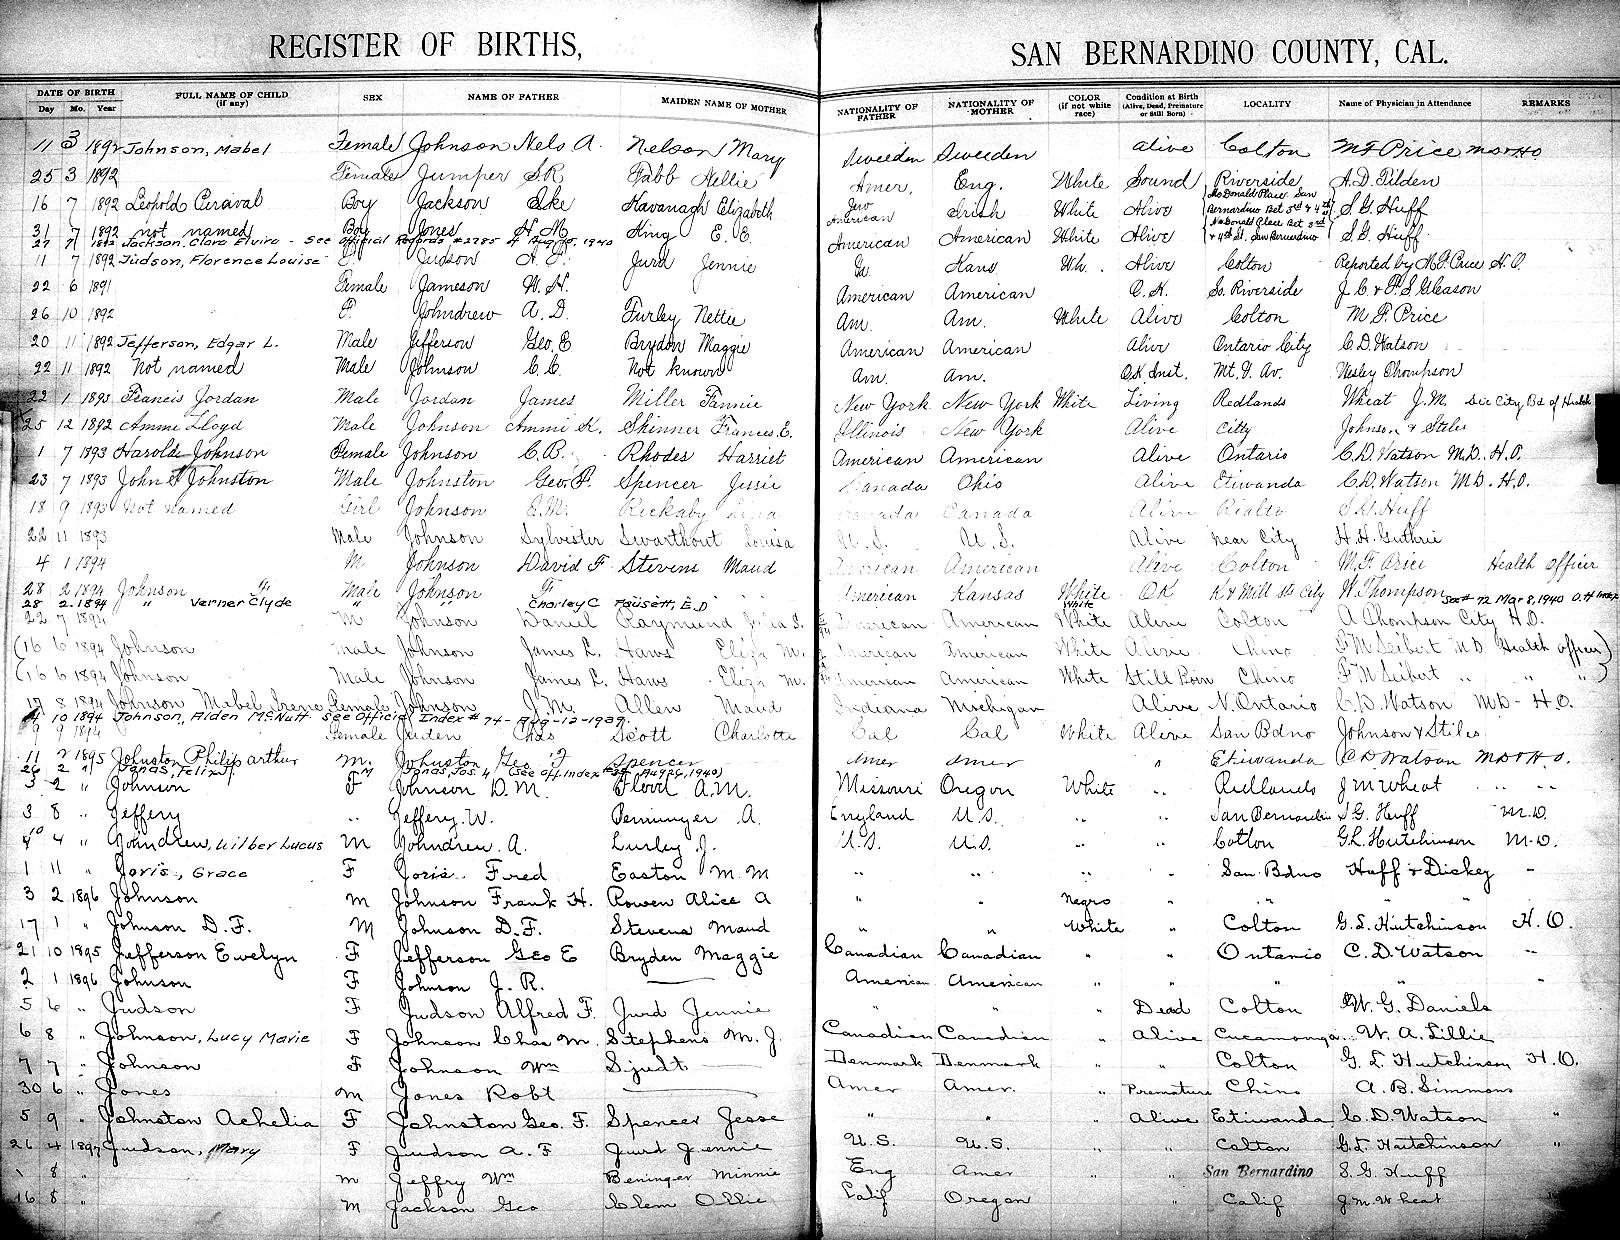 REGISTER OF BIRTHS, SAN BERNARDINO COUNTY, CAL.
DATE OF BIRTH Day Mo. Year FULL NAME OF CHILD (if any) SEX NAME OF FATHER MAIDEN NAME OF MOTHER NATIONALITY OF FATHER NATIONALITY OF MOTHER COLOR (if not white race) Condition at Birth (Alive, Dead, Premature or Still Born) LOCALITY Name of Physician in Attendance REMARKS
11 3 1892 Johnson, Mabel Female Johnson Nels A. Nelson Mary Sweeden Sweeden alive Colton M F Price M D & H O
25 3 1892 Female Jumper S.R. Tabb Nellie Amer. Eng. White Sound Riverside A.D. Tilden
16 7 1892 Leohold Boy Jackson Ike Kavanagh Elizabeth Jew American Irish White Alive McDonald Place San Bernardino Bet 3rd & 4th St S.G. Huff
31 7 1892 not named Boy Jones H.M. King E.E. American American White Alive McDonald Place Bet 3rd & 4th St. San Bernardino S.G. Huff
27 7 1892 Jackson, Clara Elvira - See Official Records #2785 Aug 15, 1940
11 7 1892 Judson, Florence Louise Judson A. F. Jurd Jennie Ga. Kans Wh. Alive Colton Reported by M.F. Price H.O.
22 6 1891 Female Jameson W.H. American American O.K. So. Riverside J.C. & F.S. Gleason
26 10 1892 F. Johndrew A.D. Furley Nettie Am. Am. White Alive Colton M.F. Price
20 11 1892 Jefferson, Edgar L. Male Jefferson Geo. E Brydon Maggie American American Alive Ontario City C.D. Watson
22 11 1892 Not named Male Johnson C.C. Not known Am. Am. OK Inst. Mt. V. Av. Wesley Thompson
22 1 1893 Francis Jordan Male Jordan James Miller Fannie New York New York White Living Redlands Wheat J.M. Sec City Bd of Health
25 12 1892 Ammi Lloyd Male Johnson Ammi K. Skinner Frances E. Illinois New York Alive City Johnson & Stiles
1 7 1893 Harolde Johnson Female Johnson C.B. Rhodes Harriet American American Alive Ontario C.D. Watson M.D. H.O.
23 7 1893 John S Johnston Male Johnston Geo. F. Spencer Jessie Canada Ohio Alive Etiwanda C.D. Watson M.D. H.O.
18 9 1893 Not named Girl Johnson J.M. Rickaby Canada Canada Alive Rialto S.G. Huff
22 11 1893 Male Johnson Sylvester Swarthout Louisa U.S. U.S. Alive near City H.H. Guthrie
4 1 1894 M Johnson David F Stevens Maud American American Alive Colton M.F. Price Health officer
28 2 1894 Johnson Male Johnson F American Kansas White OK K & Mill sts City W. Thompson
28 2 1894 " Verner Clyde " " Charley C Fausett, E.D White See # 72 Mar 8, 1940 O.H Index
22 7 1894 M Johnson Daniel Raymund Julia S. American American White Alive Colton A Thompson City H.O.
(16 6 1894 Johnson Male Johnson James L. Haws Eliza M. American American White Alive Chino F M Seibert M D Health officer)
(16 6 1894 Johnson Male Johnson James L. Haws Eliza M. American American White Still Born Chino F. M Seibert " " ")
17 8 1894 Johnson Mabel Irene Female Johnson J.M. Allen Maud Indiana Mechigan Alive N. Ontario C.D. Watson M.D - H.O.
10 1894 Johnson, Alden McNutt. See Official Index # 74 - Aug-12-1939.
9 9 1894 Female Juden Chas Scott Charlotte Cal Cal White Alive San Bdno Johnson & Stiles
11 2 1895 Johnston Philip arthur M. Johnston Geo F Spencer Amer Amer " Etiwanda C D Watson M D & H.O.
26 2 " Jonas, Felix J. M Jonas, Jos. 4 (See Off. Index Aug 26, 1940)
3 2 " Johnson F Johnson D.M. Flood A.M. Missouri Oregon White " Redlands J M Wheat " "
3 8 " Jeffery " Jeffery. W. Peninger A. England U.S. " " San Bernardin S G. Huff M.D.
10 4 " Johndrew, Wilber Lucus M Johndrew. A. Lurley J. U.S. U.S. " " Colton G.L. Hutchinson M.D.
1 11 " Joris, Grace F Joris Fred Easton M.M " " " " San Bdno Huff & Dickey "
3 2 1896 Johnson M Johnson Frank H. Rowen Alice A " " Negro " " " "
17 1 " Johnson D.F. M Johnson D.F. Stevens Maud " " White " Colton G.L. Hutchinson H.O.
21 10 1895 Jefferson Evelyn F Jefferson Geo E Bryden Maggie Canadian Canadian " " Ontario C.D. Watson "
2 1 1896 Johnson F Johnson J. R. American American " " " " "
5 6 " Judson F Judson Alfred F. Jurd Jennie " " " Dead Colton W. G. Daniels
6 8 " Johnson, Lucy Marie F Johnson Chas M. Stephens M. J. Canadian Canadian " Alive Cucamonga W. A. Lillie
7 7 " Johnson F Johnson Wm Sjudt Denmark Denmark " " Colton G. L Hutchinson H.O.
30 6 " Jones M Jones Robt Amer Amer. " Premature Chino A. B. Simmons
5 9 " Johnston Achelia F Johnston Geo. F. Spencer Jesse " " " Alive Etiwanda C. D. Watson "
26 4 1897 Judson, Mary F Judson A. F Jurd Jennie U.S. U.S. " " Colton G.L. Hutchinson "
1 8 " M Jeffry Wm Beninger Minnie Eng Amer " " San Bernardino S. G. Huff
16 8 " M Jackson Geo Clem Ollie Calif Oregon " " Calif J. M. Wheat